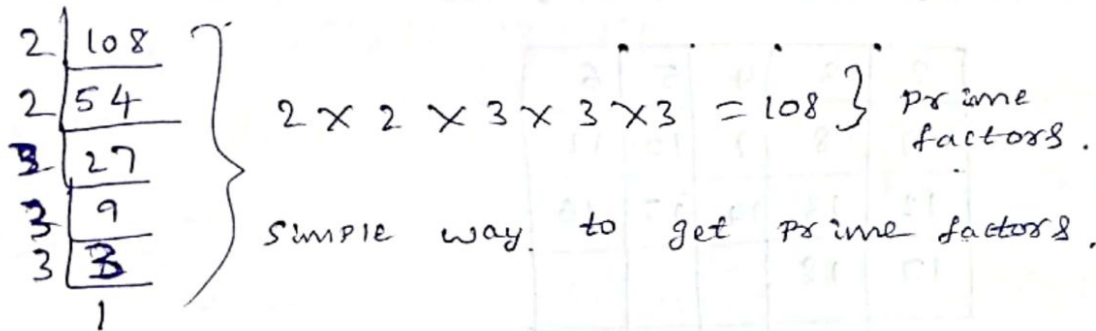 2 | 108
2 | 54
3 | 27
3 | 9
3 | 3
1
2 × 2 × 3 × 3 × 3 = 108 } prime
factors.
simple way. to get prime factors.